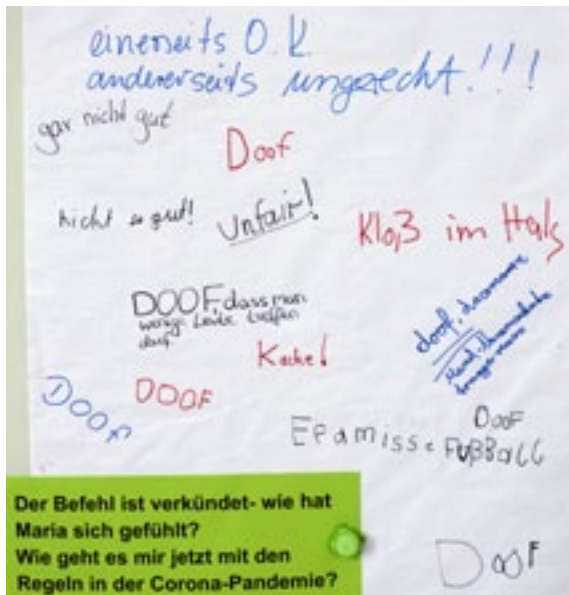 einerseits O.K.
andererseits ungerecht!!!
gar nicht gut
Doof
nicht so gut!
Unfair!
Kloß im Hals
DOOF, dass man
wenige Leute treffen
darf
doof, dass man
Kacke!
DOOF
Doof
Doof
FUßBaLL
Der Befehl ist verkündet- wie hat
Maria sich gefühlt?
Wie geht es mir jetzt mit den
Regeln in der Corona-Pandemie?
Doof